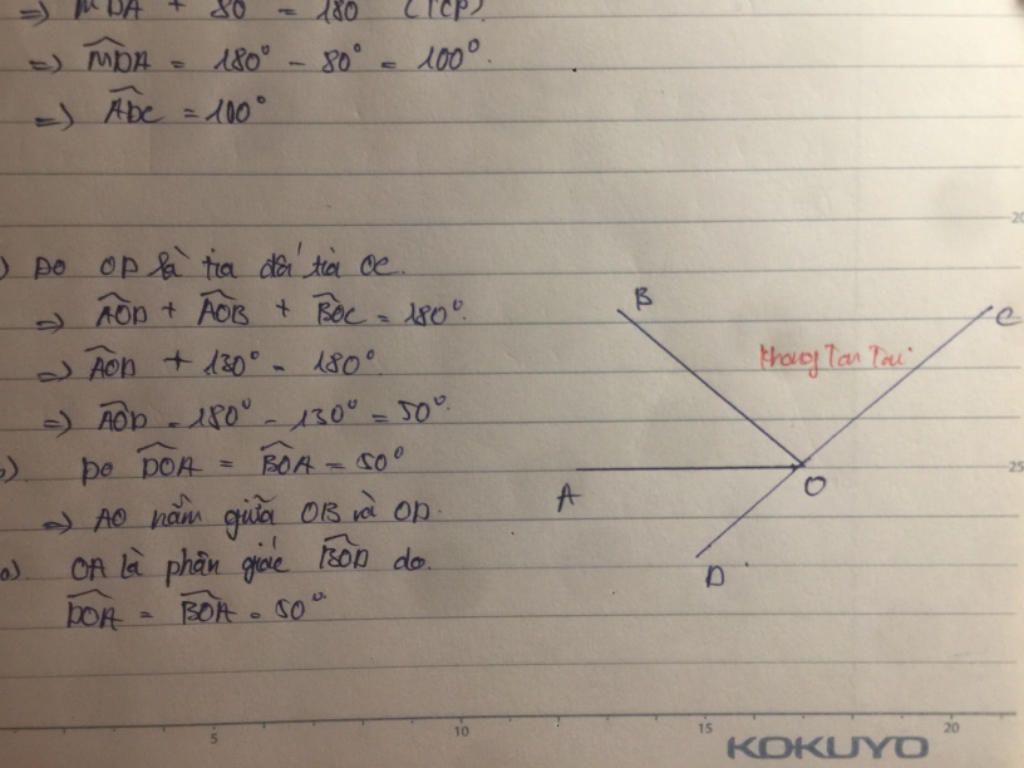 => MDA + 80 = 180 (TCP).
=> MDA = 180° - 80° = 100°.
=> ADC = 100°
) DO OD là tia đối tia OC.
=> AOD + AOB + BOC = 180°.
=> AOD + 130° = 180°.
=> AOD = 180° - 130° = 50°.
b). DO DOA = BOA = 50°
=> AO nằm giữa OB và OD.
a). OA là phân giác BOD do.
DOA = BOA = 50°
B
C
A
O
D
20
25
5
10
15
20
KOKUYO